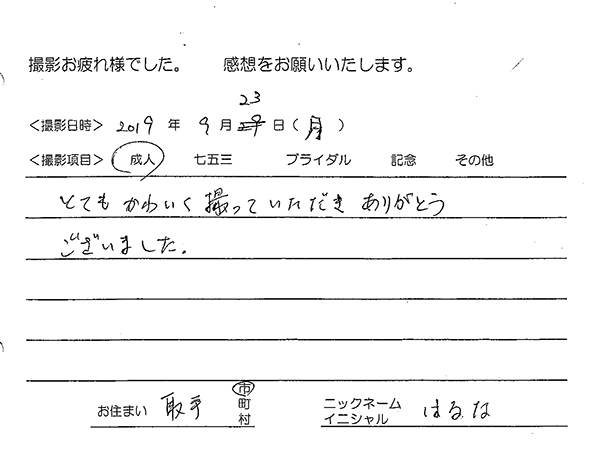 撮影お疲れ様でした。 感想をお願いいたします。
<撮影日時> 2019 年 9 月 23 日 ( 月 )
<撮影項目> 成人 七五三 ブライダル 記念 その他
とても かわいく 撮って いただき ありがとう
ございました。
お住まい 取手 市 町 村 ニックネーム イニシャル はるな